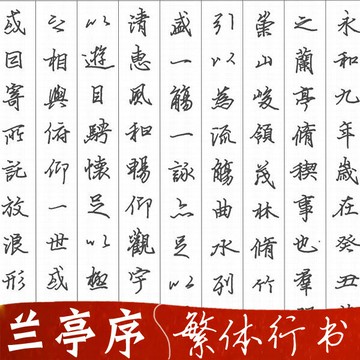 永和九年歲在癸丑
之蘭亭脩禊事也羣
崇山峻領茂林脩竹
引以為流觴曲水列
盛一觴一詠亦足以
清惠風和暢仰觀宇
以遊目騁懷足以極
之相與俯仰一世或
或因寄所託放浪形
兰亭序
繁体行书